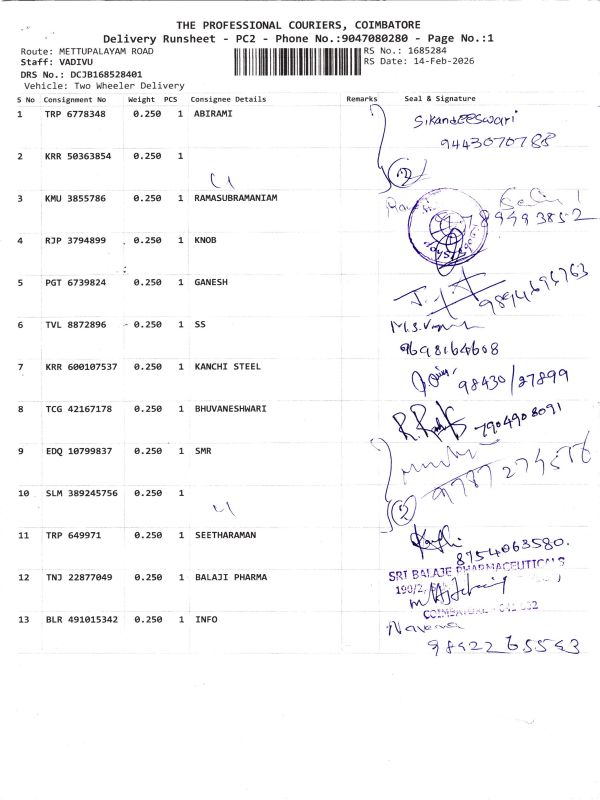 THE PROFESSIONAL COURIERS, COIMBATORE
Delivery Runsheet - PC2 - Phone No.:9047080280 - Page No.:1
Route: METTUPALAYAM ROAD
RS No.: 1685284
Staff: VADIVU
RS Date: 14-Feb-2026
DRS No.: DCJB168528401
Vehicle: Two Wheeler Delivery
S No Consignment No Weight PCS Consignee Details Remarks Seal & Signature
1 TRP 6778348 0.250 1 ABIRAMI
9443070788
2 KRR 50363854 0.250 1
2
3 KMU 3855786 0.250 1 RAMASUBRAMANIAM
4 RJP 3794899 0.250 1 KNOB
5 PGT 6739824 0.250 1 GANESH
6 TVL 8872896 0.250 1 SS
9698164608
7 KRR 600107537 0.250 1 KANCHI STEEL
98430/27899
8 TCG 42167178 0.250 1 BHUVANESHWARI
7904908091
9 EDQ 10799837 0.250 1 SMR
10 SLM 389245756 0.250 1
2
11 TRP 649971 0.250 1 SEETHARAMAN
8754063580.
12 TNJ 22877049 0.250 1 BALAJI PHARMA
SRI BALAJE PHARMACEUTICALS
13 BLR 491015342 0.250 1 INFO
9842265543